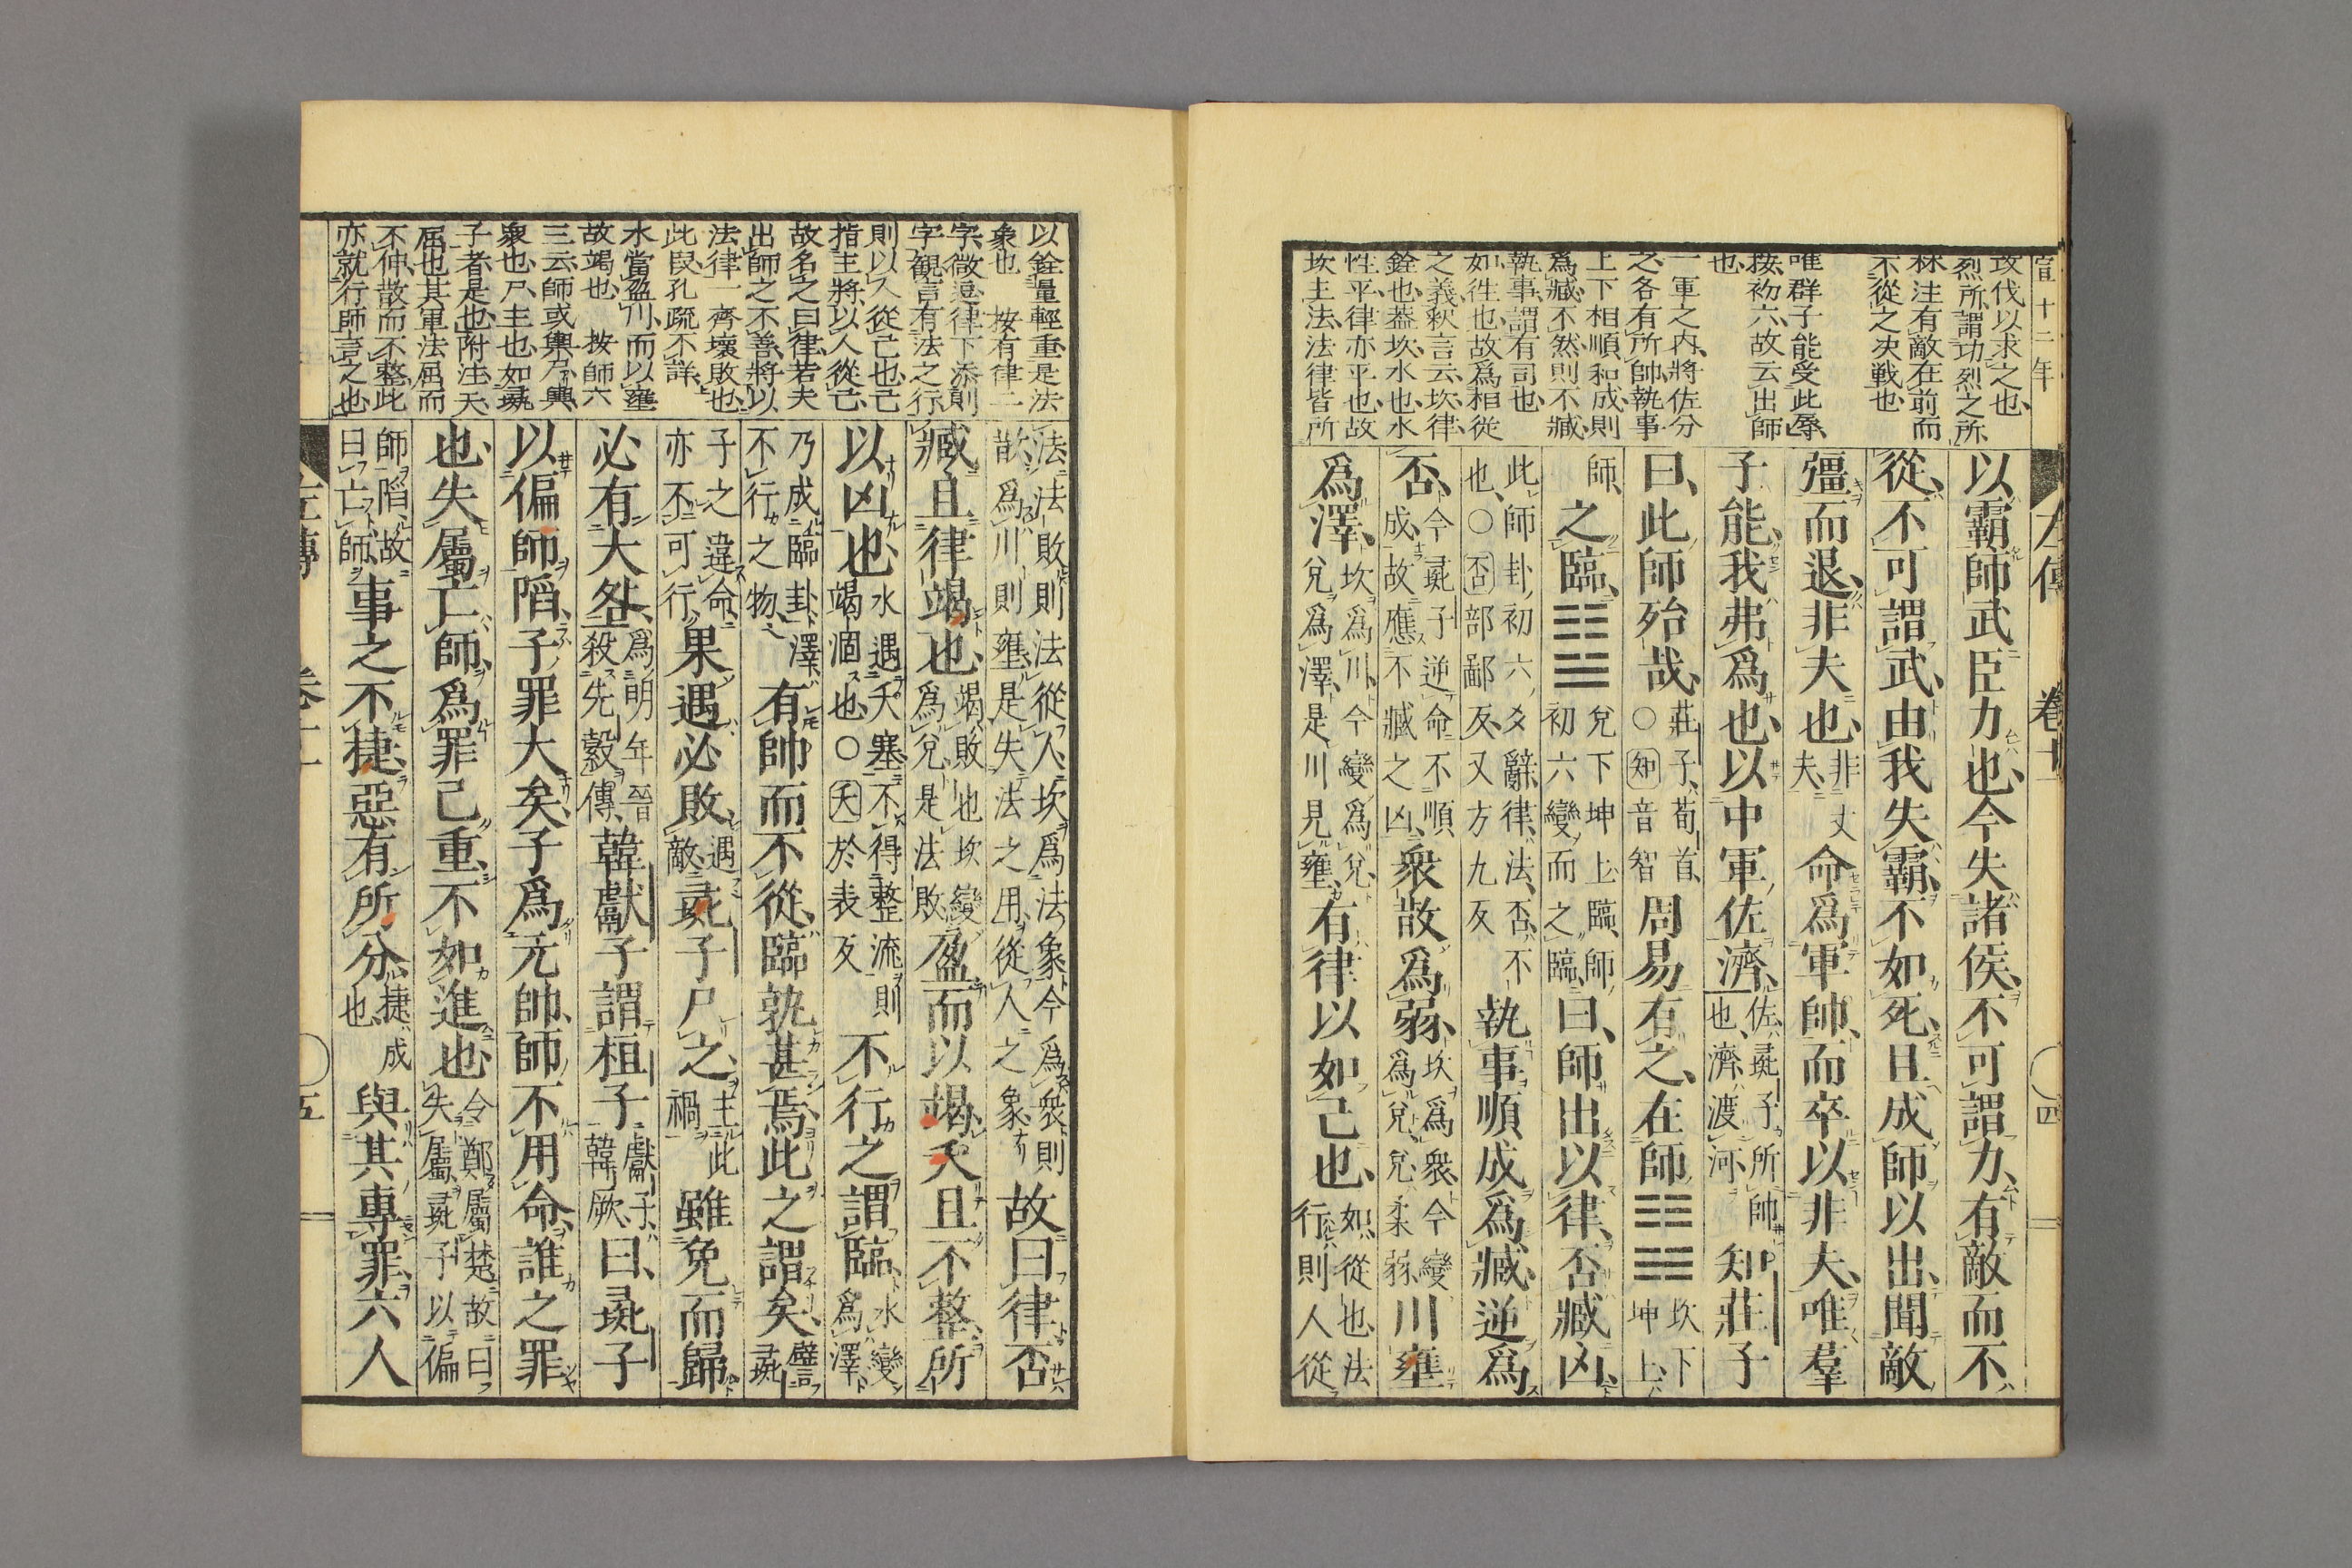 宣十二年
左傳 卷十一 四
攻伐以求之也
烈所謂功烈之所
林注有敵在前而
不從之决戰也
唯群子能受此辱
按初六故云出師
也
一軍之内將佐分
之各有所帥執事
上下相順和成則
爲臧不然則不臧
執事謂有司也
如往也故爲相從
之義釈言云坎律
銓也葢坎水也水
性平律亦平也故
坎主法法律皆所
以霸師武臣力也今失諸侯不可謂力有敵而不
從不可謂武由我失霸不如死且成師以出聞敵
彊而退非夫也非丈夫命爲軍帥而卒以非夫唯羣
子能我弗爲也以中軍佐濟佐彘子所帥也濟渡河知莊子
曰此師殆哉莊子荀首〇知音智周易有之在師䷆坎下坤上
師之臨䷒兌下坤上臨師初六變而之臨曰師出以律否臧凶
此師卦初六爻辭律法否不也〇否部鄙反又方九反執事順成爲臧逆爲
否今彘子逆命不順成故應不臧之凶衆散爲弱坎爲衆今變爲兌兌柔弱川壅
爲澤坎爲川今變爲兌兌爲澤是川見壅有律以如己也如從也法行則人從
以銓量輕重是法
象也 按有律二
字微逗律下添則
字觀言有法之行
則以人從己也己
指主將以人從己
故名之曰律若夫
出師之不善將以
法律一齊壞敗也
此段孔疏不詳
水當盈川而以壅
故竭也 按師六
三云師或輿尸輿
衆也尸主也如彘
子者是也附注夭
屈也其軍法屈而
不伸散而不整此
亦就行師言之也
法法敗則法從人坎爲法象今爲衆則散爲川則壅是失法之用從人之象故曰律否
臧且律竭也竭敗也坎變爲兌是法敗盈而以竭夭且不整所
以凶也水遇夭塞不得整流則竭涸也〇夭於表反不行之謂臨水變爲澤
乃成臨卦澤不行之物有帥而不從臨孰甚焉此之謂矣譬彘
子之違命亦不可行果遇必敗遇敵彘子尸之主此禍雖免而歸
必有大咎爲明年晉殺先縠傳韓獻子謂桓子獻子韓厥曰彘子
以偏師陷子罪大矣子爲元帥師不用命誰之罪
也失屬亡師爲罪己重不如進也令鄭屬楚故曰失屬彘子以偏
師陷故曰亡師事之不捷惡有所分捷成也與其專罪六人
左傳 卷十一 五